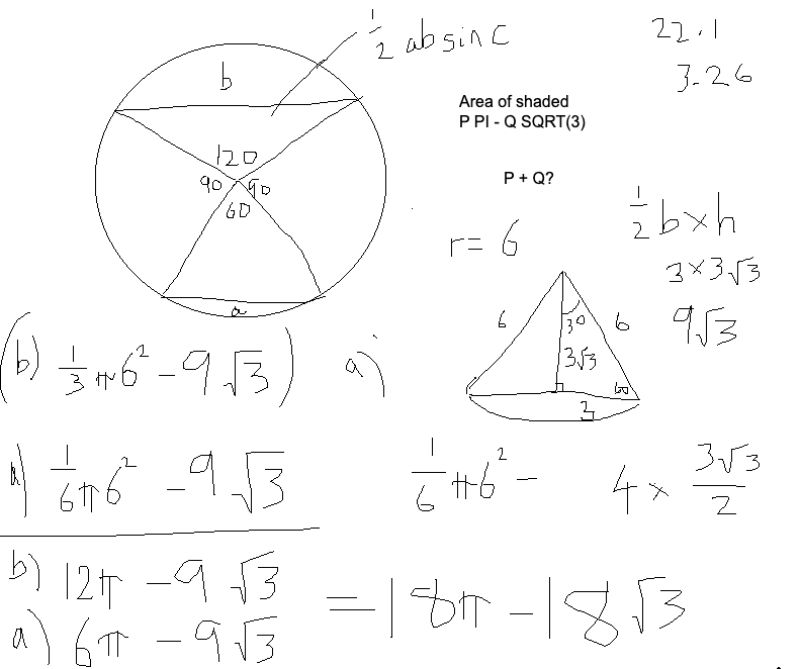 1/2 ab sin C
22.1
3.26
b
Area of shaded
P PI - Q SQRT(3)
P + Q?
120
90
90
60
a
r = 6
1/2 b×h
3×3√3
9√3
6
30
6
3√3
60
3
(b) 1/3 π6² - 9√3)
a)
a) 1/6 π6² - 9√3
1/6 π6² -
4 × 3√3/2
b) 12π - 9√3
a) 6π - 9√3
= 18π - 18√3